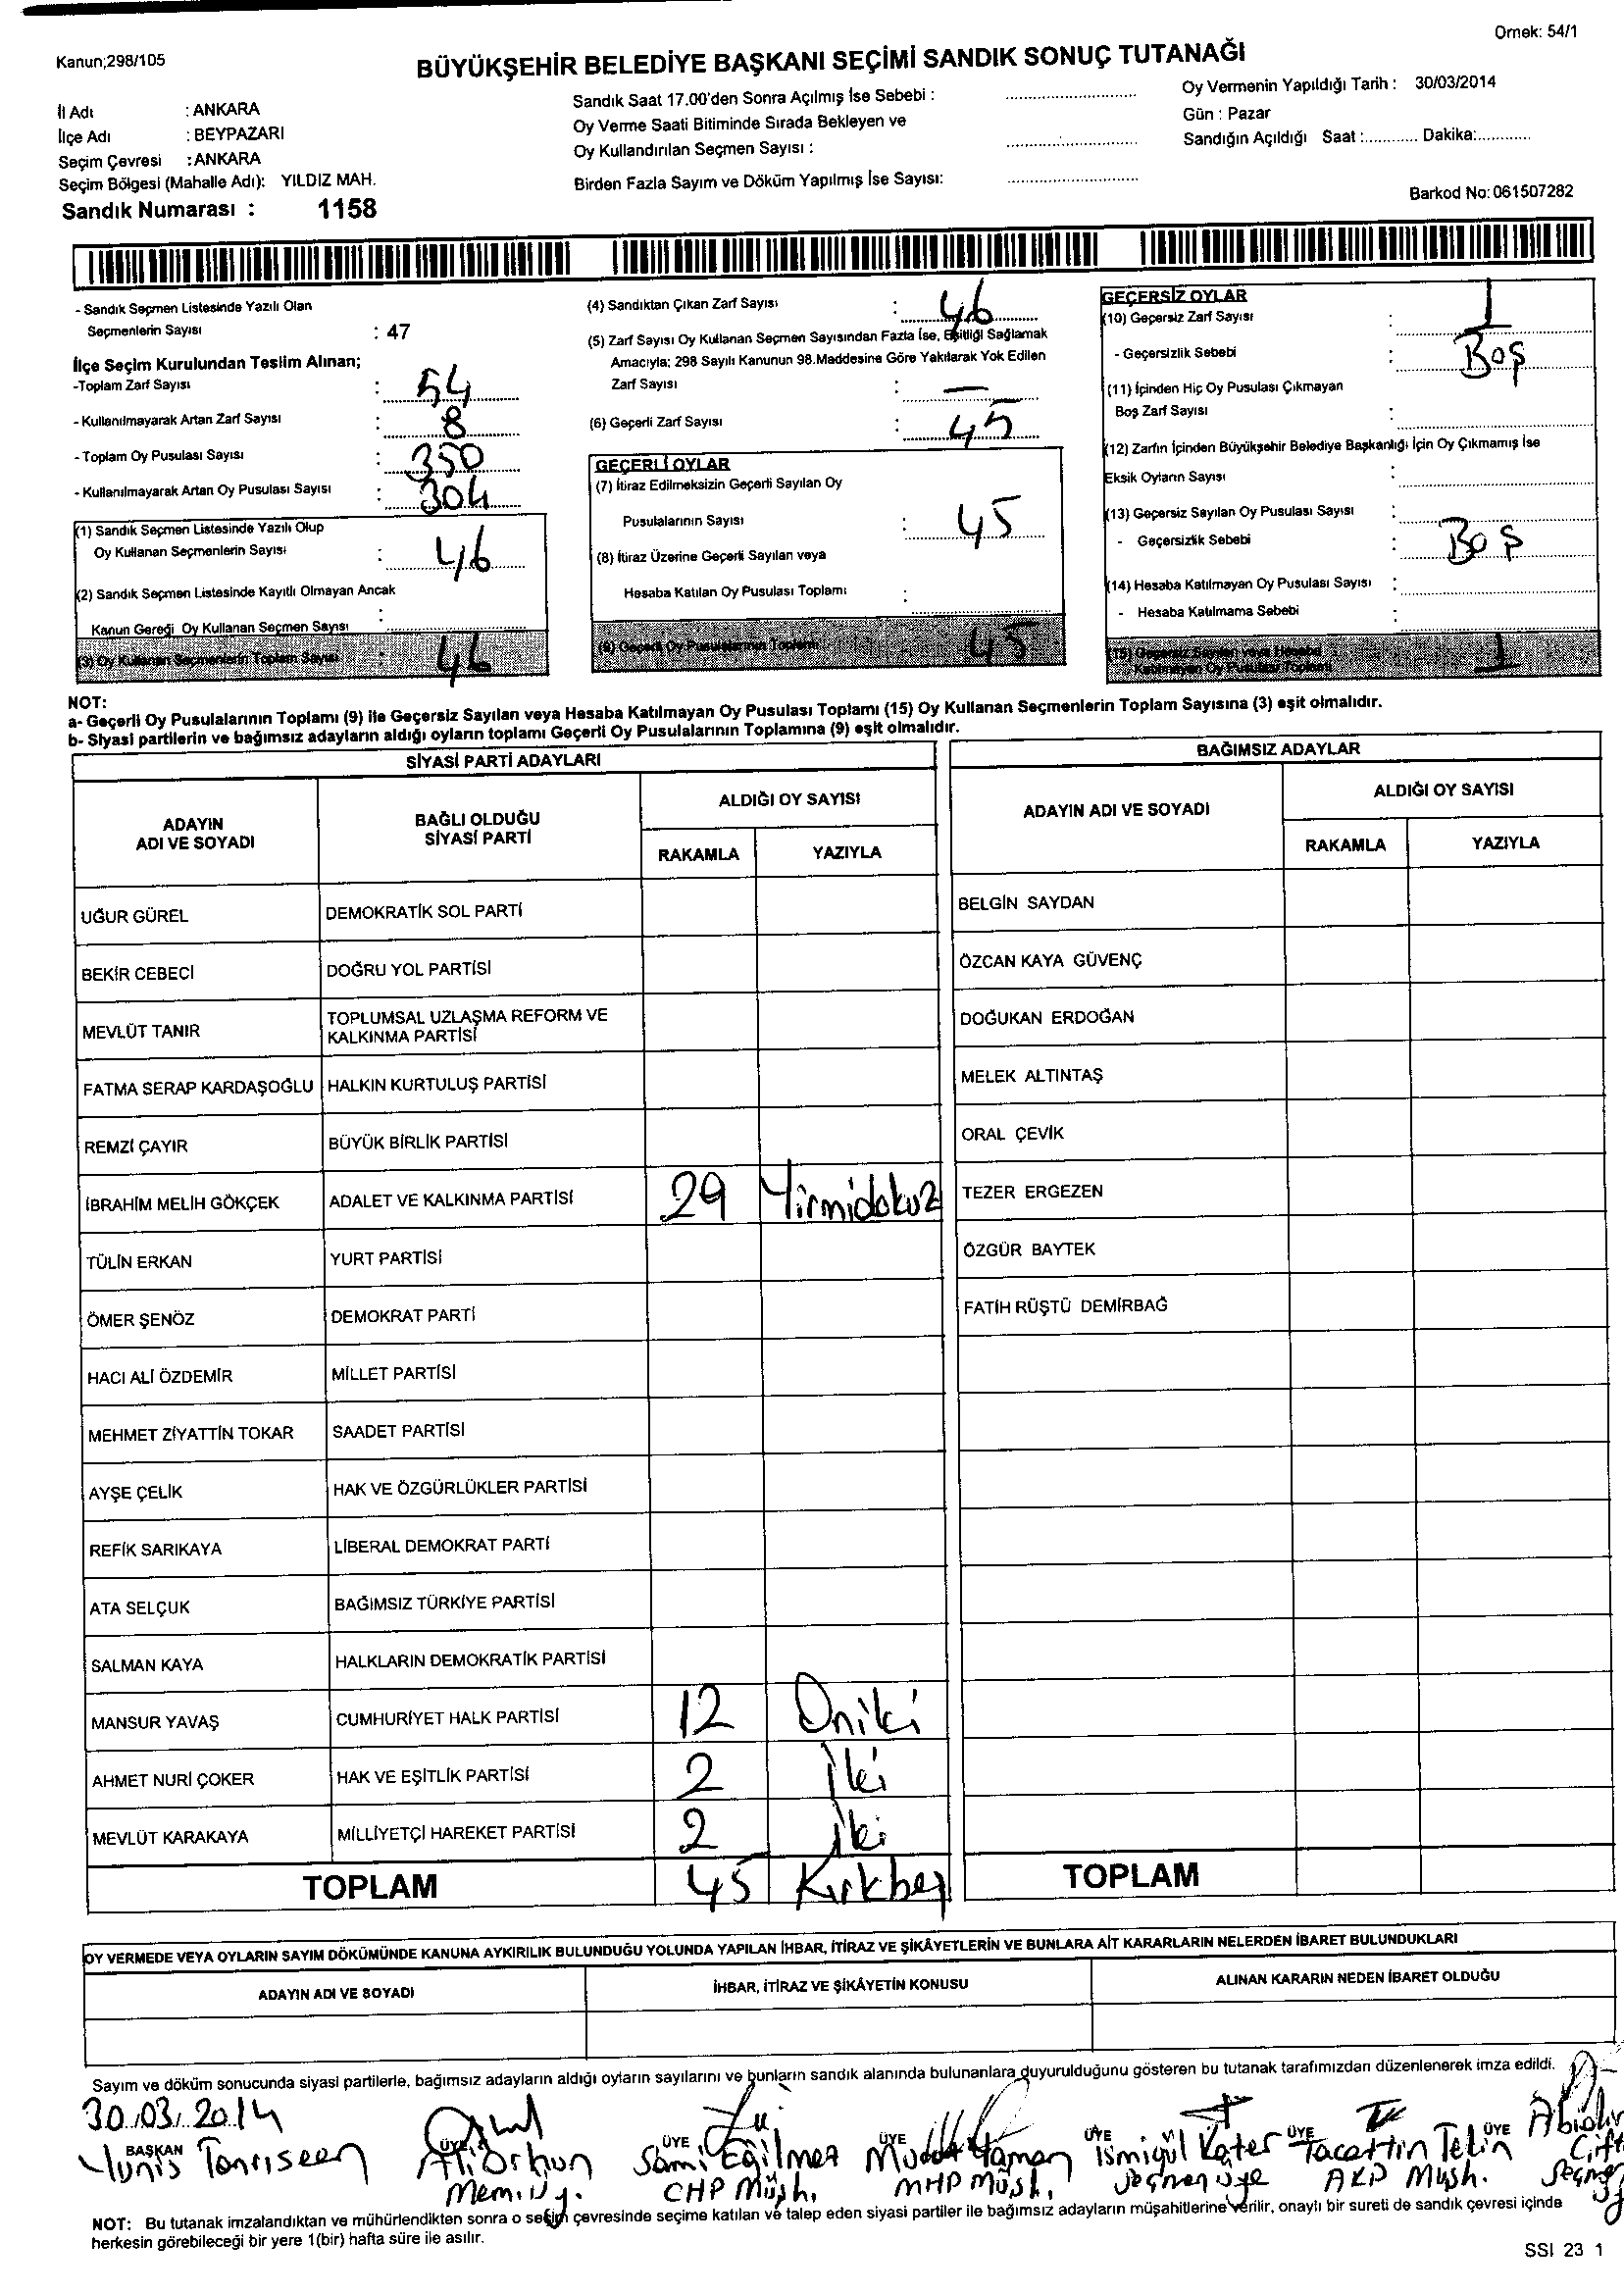 Örnek: 54/1
Kanun;298/105
BÜYÜKŞEHİR BELEDİYE BAŞKANI SEÇİMİ SANDIK SONUÇ TUTANAĞI
İl Adı : ANKARA
İlçe Adı : BEYPAZARI
Seçim Çevresi : ANKARA
Seçim Bölgesi (Mahalle Adı): YILDIZ MAH.
Sandık Numarası : 1158
Sandık Saat 17.00'den Sonra Açılmış İse Sebebi :
Oy Verme Saati Bitiminde Sırada Bekleyen ve
Oy Kullandırılan Seçmen Sayısı :
Birden Fazla Sayım ve Döküm Yapılmış İse Sayısı:
Oy Vermenin Yapıldığı Tarih : 30/03/2014
Gün : Pazar
Sandığın Açıldığı Saat :............ Dakika:............
Barkod No: 061507282
- Sandık Seçmen Listesinde Yazılı Olan
Seçmenlerin Sayısı : 47
İlçe Seçim Kurulundan Teslim Alınan;
-Toplam Zarf Sayısı : 54
- Kullanılmayarak Artan Zarf Sayısı : 8
- Toplam Oy Pusulası Sayısı : 350
- Kullanılmayarak Artan Oy Pusulası Sayısı : 304
(1) Sandık Seçmen Listesinde Yazılı Olup
Oy Kullanan Seçmenlerin Sayısı : 46
(2) Sandık Seçmen Listesinde Kayıtlı Olmayan Ancak
Kanun Gereği Oy Kullanan Seçmen Sayısı :
(3) Oy Kullanan Seçmenlerin Toplam Sayısı : 46
(4) Sandıktan Çıkan Zarf Sayısı : 46
(5) Zarf Sayısı Oy Kullanan Seçmen Sayısından Fazla İse, Eşitliği Sağlamak
Amacıyla; 298 Sayılı Kanunun 98.Maddesine Göre Yakılarak Yok Edilen
Zarf Sayısı : —
(6) Geçerli Zarf Sayısı : 45
GEÇERLİ OYLAR
(7) İtiraz Edilmeksizin Geçerli Sayılan Oy
Pusulalarının Sayısı : 45
(8) İtiraz Üzerine Geçerli Sayılan veya
Hesaba Katılan Oy Pusulası Toplamı :
(9) Geçerli Oy Pusulalarının Toplamı 45
GEÇERSİZ OYLAR
(10) Geçersiz Zarf Sayısı : 1
- Geçersizlik Sebebi : Boş
(11) İçinden Hiç Oy Pusulası Çıkmayan
Boş Zarf Sayısı :
(12) Zarfın İçinden Büyükşehir Belediye Başkanlığı İçin Oy Çıkmamış İse
Eksik Oyların Sayısı :
(13) Geçersiz Sayılan Oy Pusulası Sayısı :
- Geçersizlik Sebebi : Boş
(14) Hesaba Katılmayan Oy Pusulası Sayısı :
- Hesaba Katılmama Sebebi :
(15) Geçersiz Sayılan veya Hesaba
Katılmayan Oy Pusulası Toplamı 1
NOT:
a- Geçerli Oy Pusulalarının Toplamı (9) ile Geçersiz Sayılan veya Hesaba Katılmayan Oy Pusulası Toplamı (15) Oy Kullanan Seçmenlerin Toplam Sayısına (3) eşit olmalıdır.
b- Siyasi partilerin ve bağımsız adayların aldığı oyların toplamı Geçerli Oy Pusulalarının Toplamına (9) eşit olmalıdır.
SİYASİ PARTİ ADAYLARI
ADAYIN ADI VE SOYADI
BAĞLI OLDUĞU SİYASİ PARTİ
ALDIĞI OY SAYISI
RAKAMLA YAZIYLA
UĞUR GÜREL DEMOKRATİK SOL PARTİ
BEKİR CEBECİ DOĞRU YOL PARTİSİ
MEVLÜT TANIR TOPLUMSAL UZLAŞMA REFORM VE
KALKINMA PARTİSİ
FATMA SERAP KARDAŞOĞLU HALKIN KURTULUŞ PARTİSİ
REMZİ ÇAYIR BÜYÜK BİRLİK PARTİSİ
İBRAHİM MELİH GÖKÇEK ADALET VE KALKINMA PARTİSİ 29 Yirmidokuz
TÜLİN ERKAN YURT PARTİSİ
ÖMER ŞENÖZ DEMOKRAT PARTİ
HACI ALİ ÖZDEMİR MİLLET PARTİSİ
MEHMET ZİYATTİN TOKAR SAADET PARTİSİ
AYŞE ÇELİK HAK VE ÖZGÜRLÜKLER PARTİSİ
REFİK SARIKAYA LİBERAL DEMOKRAT PARTİ
ATA SELÇUK BAĞIMSIZ TÜRKİYE PARTİSİ
SALMAN KAYA HALKLARIN DEMOKRATİK PARTİSİ
MANSUR YAVAŞ CUMHURİYET HALK PARTİSİ 12 Oniki
AHMET NURİ ÇOKER HAK VE EŞİTLİK PARTİSİ 2 İki
MEVLÜT KARAKAYA MİLLİYETÇİ HAREKET PARTİSİ 2 İki
TOPLAM 45 Kırkbeş
BAĞIMSIZ ADAYLAR
ADAYIN ADI VE SOYADI
ALDIĞI OY SAYISI
RAKAMLA YAZIYLA
BELGİN SAYDAN
ÖZCAN KAYA GÜVENÇ
DOĞUKAN ERDOĞAN
MELEK ALTINTAŞ
ORAL ÇEVİK
TEZER ERGEZEN
ÖZGÜR BAYTEK
FATİH RÜŞTÜ DEMİRBAĞ
TOPLAM
OY VERMEDE VEYA OYLARIN SAYIM DÖKÜMÜNDE KANUNA AYKIRILIK BULUNDUĞU YOLUNDA YAPILAN İHBAR, İTİRAZ VE ŞİKÂYETLERİN VE BUNLARA AİT KARARLARIN NELERDEN İBARET BULUNDUKLARI
ADAYIN ADI VE SOYADI İHBAR, İTİRAZ VE ŞİKÂYETİN KONUSU ALINAN KARARIN NEDEN İBARET OLDUĞU
Sayım ve döküm sonucunda siyasi partilerle, bağımsız adayların aldığı oyların sayılarını ve bunların sandık alanında bulunanlara duyurulduğunu gösteren bu tutanak tarafımızdan düzenlenerek imza edildi.
30.03.2014
BAŞKAN ÜYE ÜYE ÜYE ÜYE ÜYE ÜYE
Yunis Tanrıseen Ali Orhun Sami Eğilmez Murat Yaman İsmigül Kater Tacettin Tekin
Mem. Üy. CHP Müşh. MHP Müşh. Seçmen üye AKP Müşh.
NOT: Bu tutanak imzalandıktan ve mühürlendikten sonra o seçim çevresinde seçime katılan ve talep eden siyasi partiler ile bağımsız adayların müşahitlerine verilir, onaylı bir sureti de sandık çevresi içinde
herkesin görebileceği bir yere 1(bir) hafta süre ile asılır.
SSI 23 1